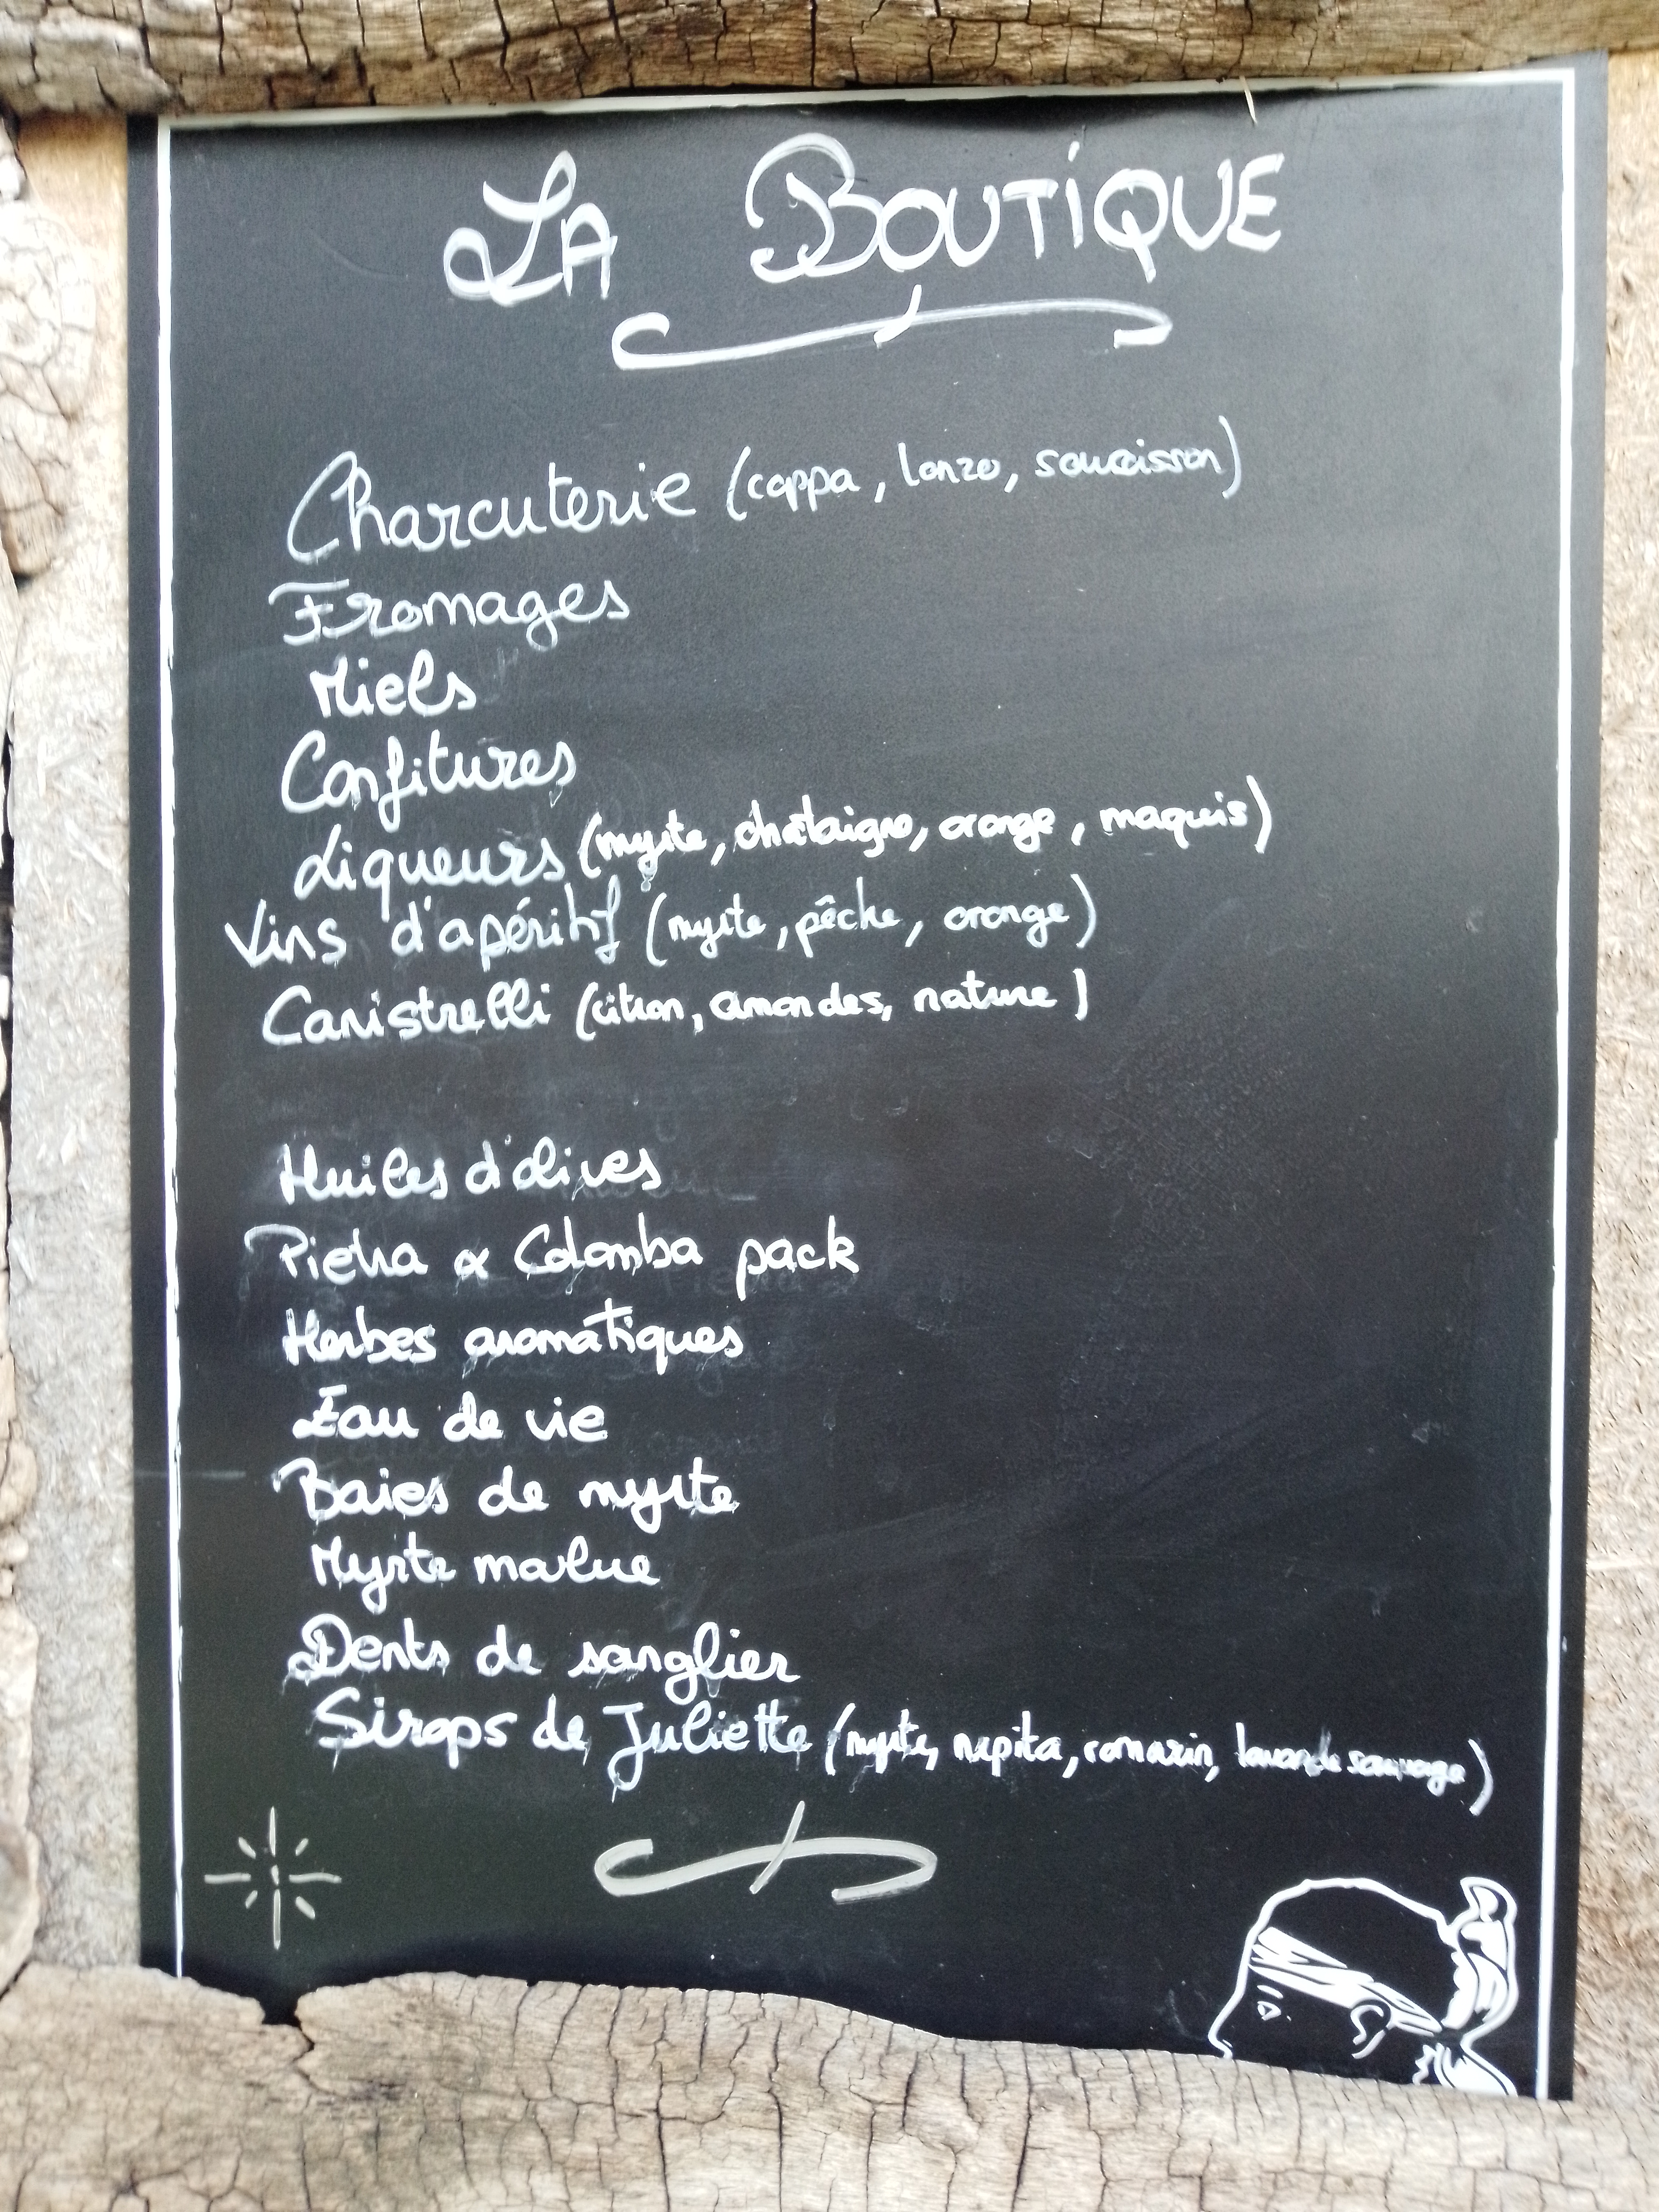 LA BOUTIQUE
Charcuterie (coppa, lonzo, saucisson)
Fromages
Miels
Confitures
Liqueurs (myrte, châtaigne, orange, maquis)
Vins d'apéritif (myrte, pêche, orange)
Canistrelli (citron, amandes, nature)
Huiles d'olives
Pietra & Colomba pack
Herbes aromatiques
Eau de vie
Baies de myrte
Myrte
Dents de sanglier
Sirops de Juliette (myrte, nepita, romarin, lavande sauvage)